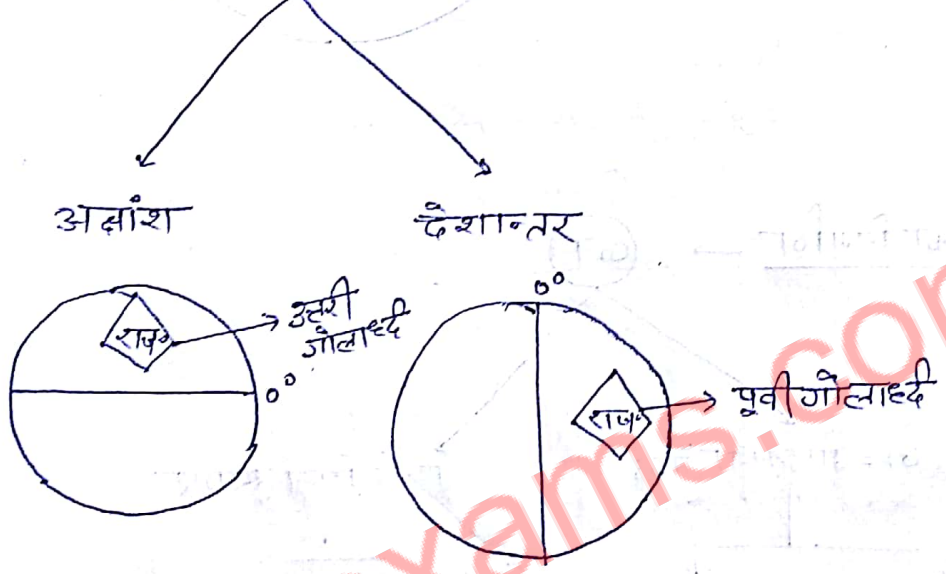 अक्षांश
देशान्तर
राज॰
उत्तरी
गोलार्ध्द
0°
0°
राज॰
पूर्वी गोलार्ध्द
xams.com